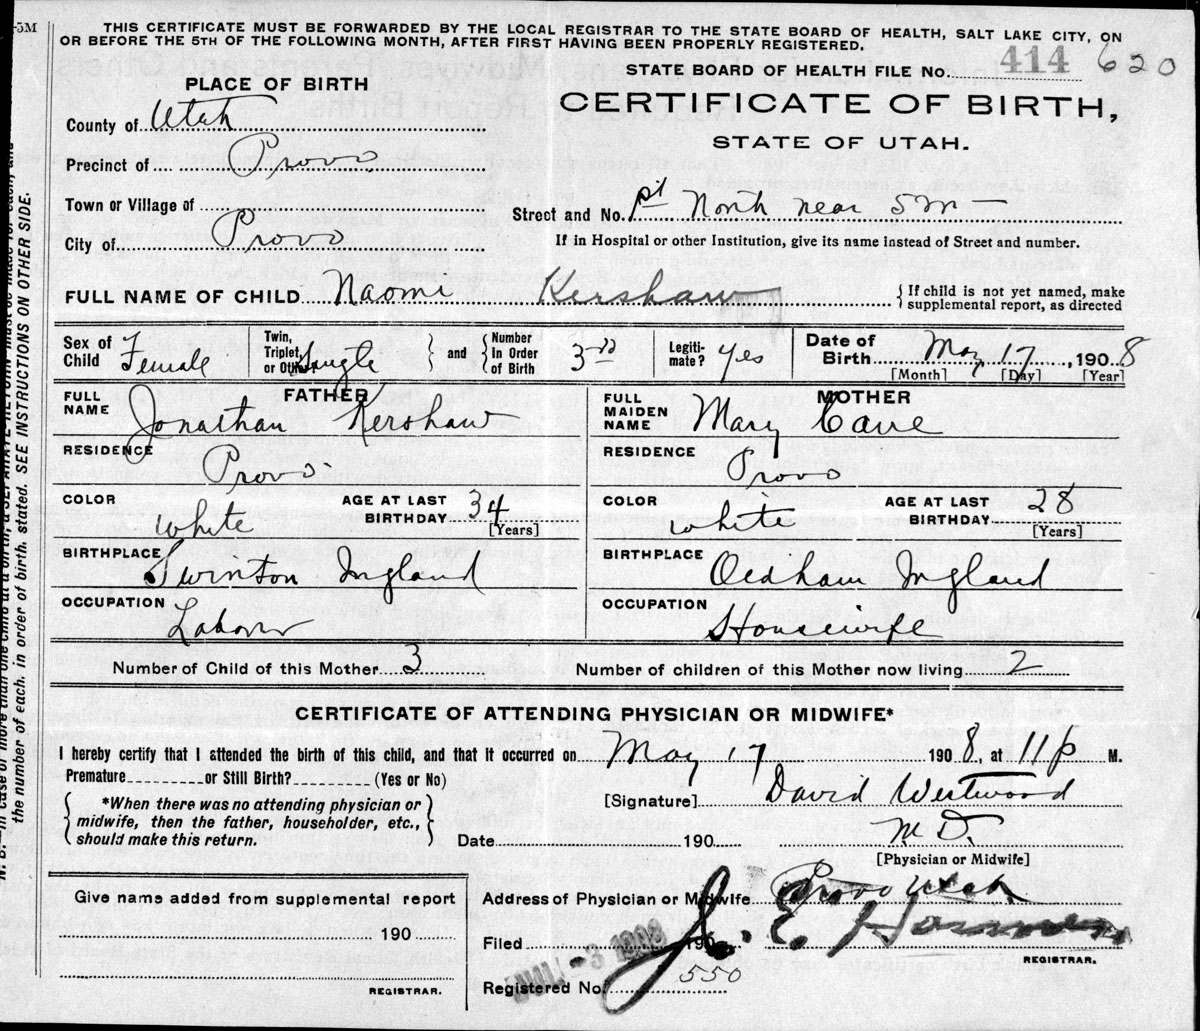 -5M
THIS CERTIFICATE MUST BE FORWARDED BY THE LOCAL REGISTRAR TO THE STATE BOARD OF HEALTH, SALT LAKE CITY, ON
OR BEFORE THE 5TH OF THE FOLLOWING MONTH, AFTER FIRST HAVING BEEN PROPERLY REGISTERED.
STATE BOARD OF HEALTH FILE No. 414 620
PLACE OF BIRTH
CERTIFICATE OF BIRTH,
STATE OF UTAH.
County of Utah
Precinct of Provo
Town or Village of
Street and No. North near 5 W
City of Provo
If in Hospital or other Institution, give its name instead of Street and number.
FULL NAME OF CHILD Naomi Kershaw { If child is not yet named, make
supplemental report, as directed
Sex of Child Female
Twin, Triplet, or Other Single } and { Number in Order of Birth 3rd
Legiti-mate? Yes
Date of Birth May 17, 1908
[Month] [Day] [Year]
FATHER
FULL NAME Jonathan Kershaw
RESIDENCE Provo
COLOR White AGE AT LAST BIRTHDAY 34 [Years]
BIRTHPLACE Swinton Ingland
OCCUPATION Labour
MOTHER
FULL MAIDEN NAME Mary Cave
RESIDENCE Provo
COLOR White AGE AT LAST BIRTHDAY 28 [Years]
BIRTHPLACE Oldham Ingland
OCCUPATION Housewife
Number of Child of this Mother 3 Number of children of this Mother now living 2
CERTIFICATE OF ATTENDING PHYSICIAN OR MIDWIFE*
I hereby certify that I attended the birth of this child, and that it occurred on May 17 1908, at 11 p M.
Premature or Still Birth? (Yes or No)
[Signature] David Westwood
{ *When there was no attending physician or
midwife, then the father, householder, etc.,
should make this return. }
Date 190 M.D.
[Physician or Midwife]
Give name added from supplemental report
190
REGISTRAR.
Address of Physician or Midwife Provo Utah
Filed JUN -3 1908 190 J. E.
REGISTRAR.
Registered No. 550
the number of each, in order of birth, stated. SEE INSTRUCTIONS ON OTHER SIDE.